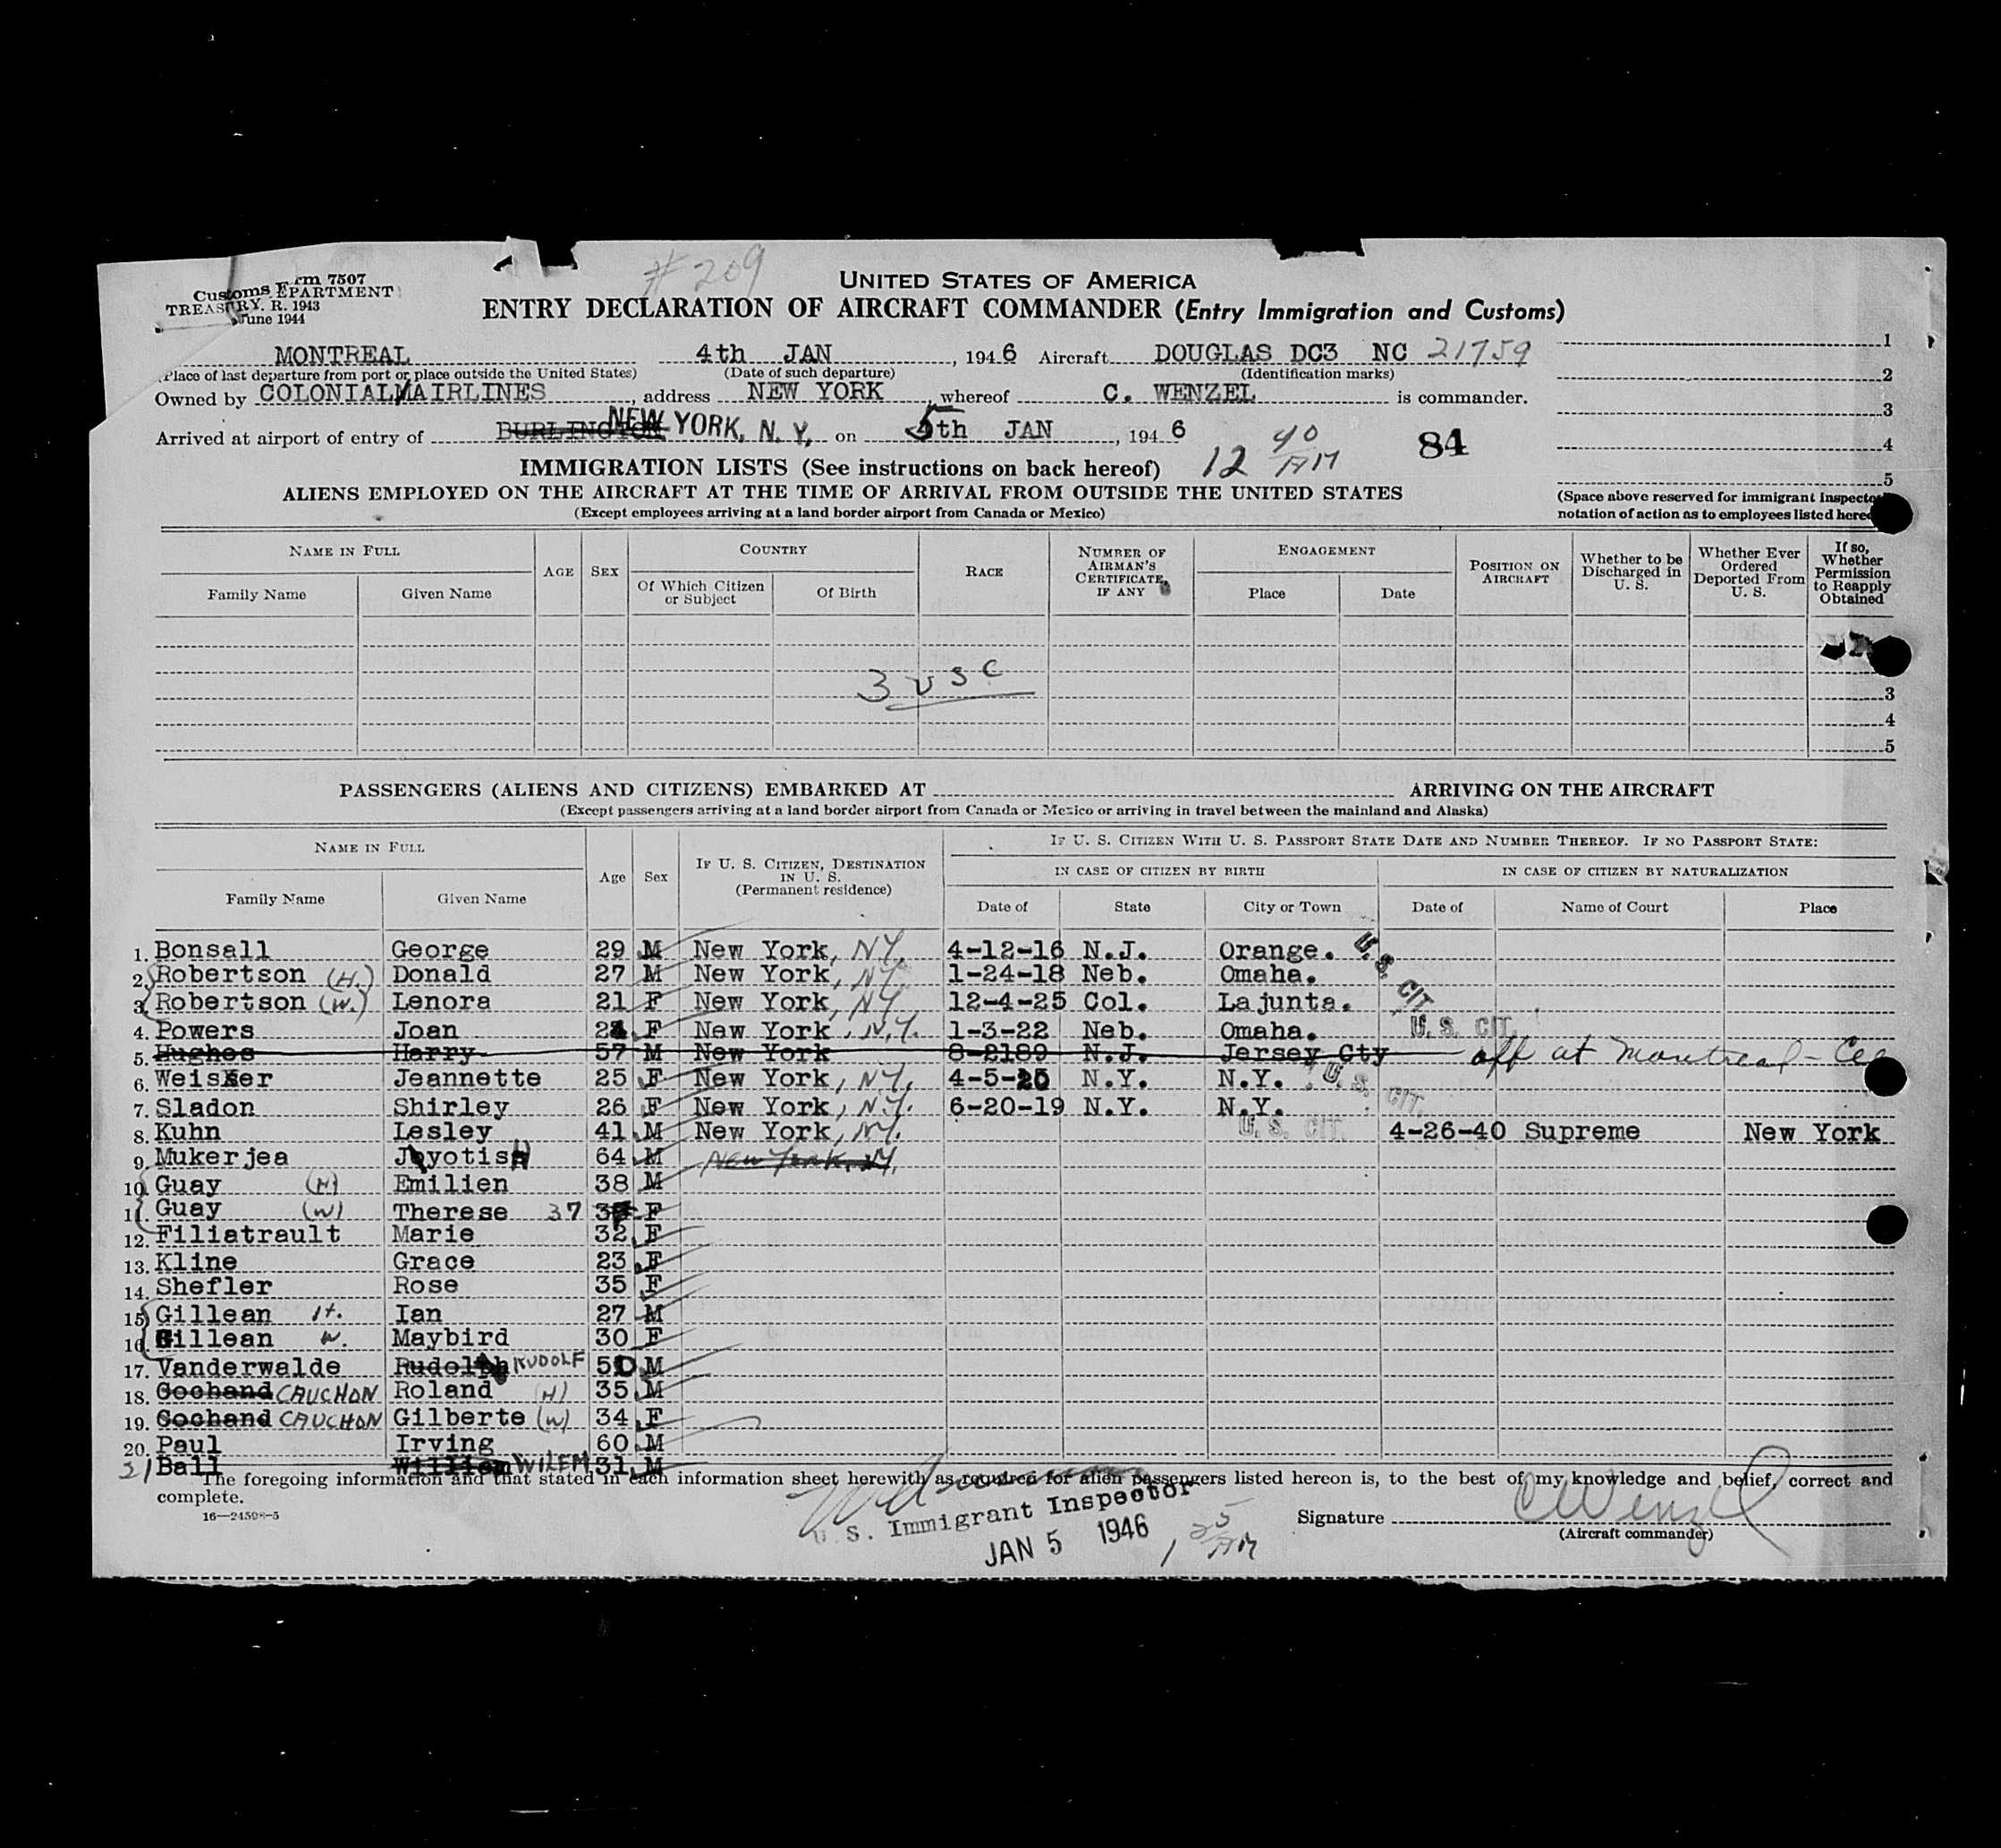 #209
Customs Form 7507
TREASURY DEPARTMENT
T. R. 1943
June 1944
UNITED STATES OF AMERICA
ENTRY DECLARATION OF AIRCRAFT COMMANDER (Entry Immigration and Customs)
MONTREAL 4th JAN , 1946 Aircraft DOUGLAS DC3 NC 21759 1
(Place of last departure from port or place outside the United States) (Date of such departure) (Identification marks) 2
Owned by COLONIAL AIRLINES , address NEW YORK , whereof C. WENZEL is commander. 3
Arrived at airport of entry of BURLINGTON NEW YORK, N. Y. on 5th JAN , 1946 12 40 AM 84 4
IMMIGRATION LISTS (See instructions on back hereof) 5
ALIENS EMPLOYED ON THE AIRCRAFT AT THE TIME OF ARRIVAL FROM OUTSIDE THE UNITED STATES
(Except employees arriving at a land border airport from Canada or Mexico)
(Space above reserved for immigrant
notation of action as to employees listed
NAME IN FULL AGE SEX COUNTRY RACE NUMBER OF AIRMAN'S CERTIFICATE, IF ANY ENGAGEMENT POSITION ON AIRCRAFT Whether to be Discharged in U. S. Whether Ever Ordered Deported From U. S. If so, Whether Permission to Reapply Obtained
Family Name Given Name Of Which Citizen or Subject Of Birth Place Date
3 USC
3
4
5
PASSENGERS (ALIENS AND CITIZENS) EMBARKED AT ARRIVING ON THE AIRCRAFT
(Except passengers arriving at a land border airport from Canada or Mexico or arriving in travel between the mainland and Alaska)
NAME IN FULL Age Sex IF U. S. CITIZEN, DESTINATION IN U. S. (Permanent residence) IF U. S. CITIZEN WITH U. S. PASSPORT STATE DATE AND NUMBER THEREOF. IF NO PASSPORT STATE:
IN CASE OF CITIZEN BY BIRTH IN CASE OF CITIZEN BY NATURALIZATION
Family Name Given Name Date of State City or Town Date of Name of Court Place
1. Bonsall George 29 M New York, N.Y. 4-12-16 N.J. Orange. U. S. CIT.
2. Robertson (H.) Donald 27 M New York, NY 1-24-18 Neb. Omaha.
3. Robertson (W.) Lenora 21 F New York, NY 12-4-25 Col. Lajunta.
4. Powers Joan 24 F New York, N.Y. 1-3-22 Neb. Omaha. U. S. CIT.
5. Hughes Harry 57 M New York 8-2189 N.J. Jersey Cty off at Montreal
6. Weisser Jeannette 25 F New York, NY. 4-5-20 N.Y. N.Y. U. S. CIT.
7. Sladon Shirley 26 F New York, N.Y. 6-20-19 N.Y. N.Y.
8. Kuhn Lesley 41 M New York, NY. U. S. CIT. 4-26-40 Supreme New York
9. Mukerjea Jyotish 64 M New York, NY.
10. Guay (H) Emilien 38 M
11. Guay (W) Therese 37 F
12. Filiatrault Marie 32 F
13. Kline Grace 23 F
14. Shefler Rose 35 F
15. Gillean H. Ian 27 M
16. Gillean W. Maybird 30 F
17. Vanderwalde Rudolph RUDOLF 50 M
18. Cochand CAUCHON Roland (H) 35 M
19. Cochand CAUCHON Gilberte (W) 34 F
20. Paul Irving 60 M
21 Ball William WILEM 31 M
The foregoing information and that stated in each information sheet herewith as required for alien passengers listed hereon is, to the best of my knowledge and belief, correct and
complete.
16—24598-5
U. S. Immigrant Inspector
JAN 5 1946 1 25 AM
Signature CWenzel
(Aircraft commander)